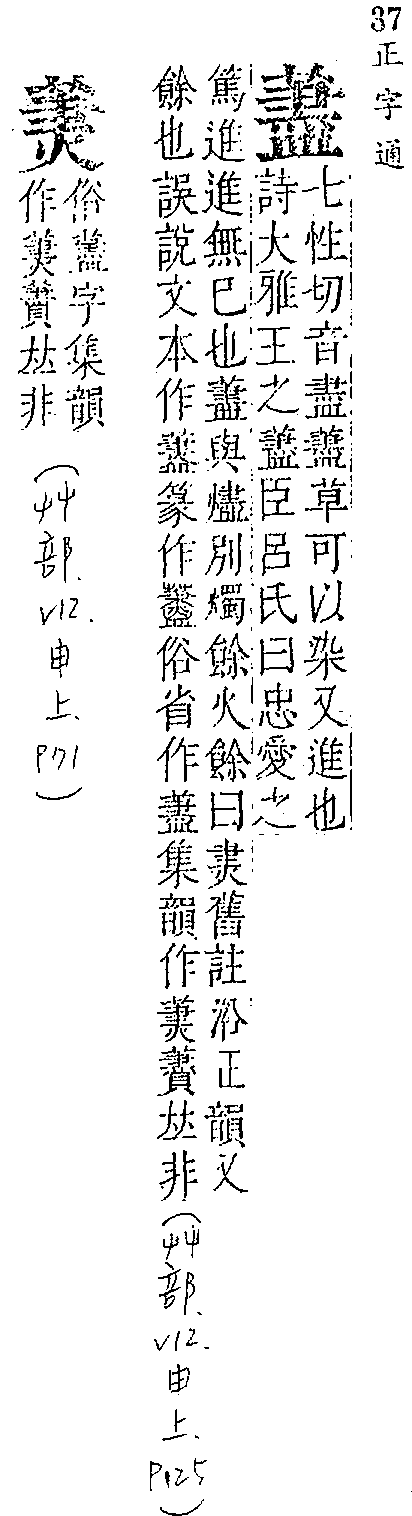 37 正字通
藎
七性切音盡藎草可以染又進也
詩大雅王之藎臣呂氏曰忠愛之
篤進進無已也藎與燼別燭餘火餘曰㶳舊註沿正韻又
餘也誤說文本作藎篆作藎俗省作藎集韻作䕅𧃝𠀤非
(艸部. V12. 申上. P125)
俗藎字集韻
作𧃝𠀤非
(艸部. V12. 申上. P71)